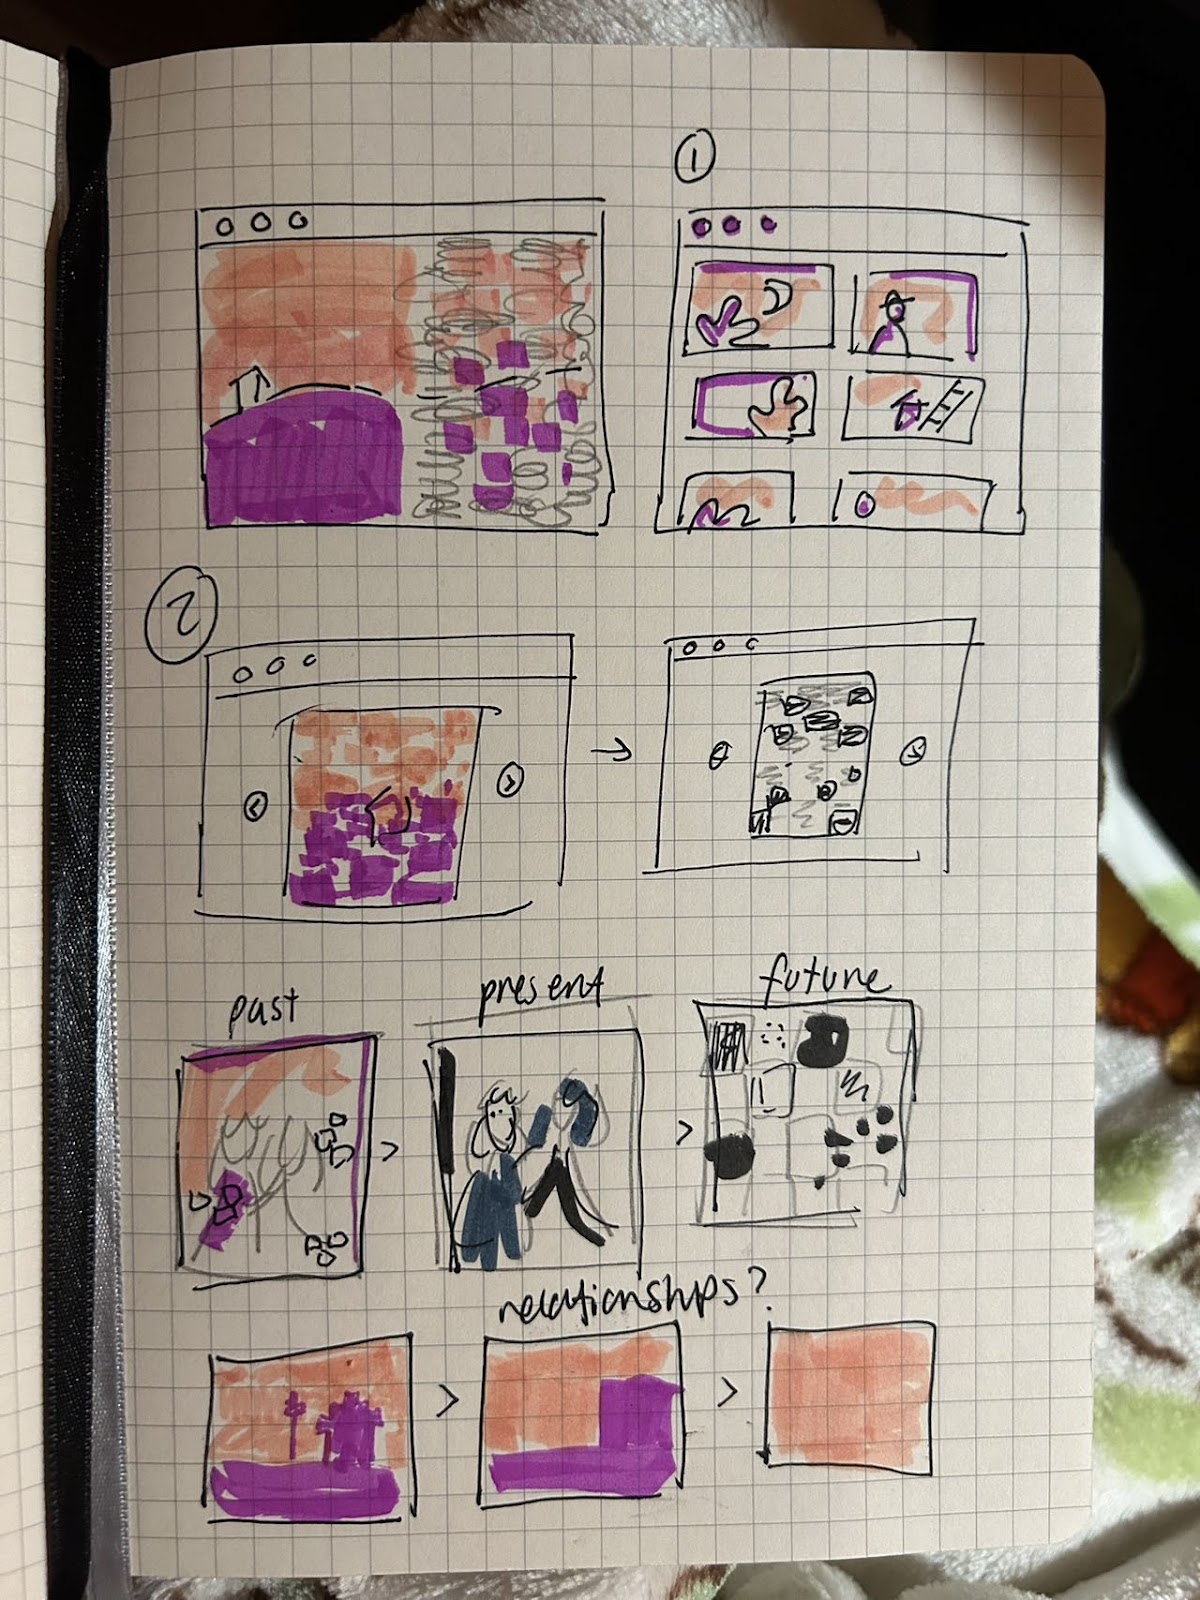 1
2
past
present
future
relationships?